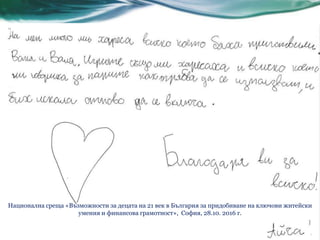 На мен много ми хареса всичко което бяха приготвили,
Валя и Ваня. Игрите също ми харесаха и всичко което
ни говориха за парите как трябва да се използват, и
бих искала отново да се включа.
Благодаря ви за
всичко!
Национална среща «Възможности за децата на 21 век в България за придобиване на ключови житейски
умения и финансова грамотност», София, 28.10. 2016 г.
Айча!